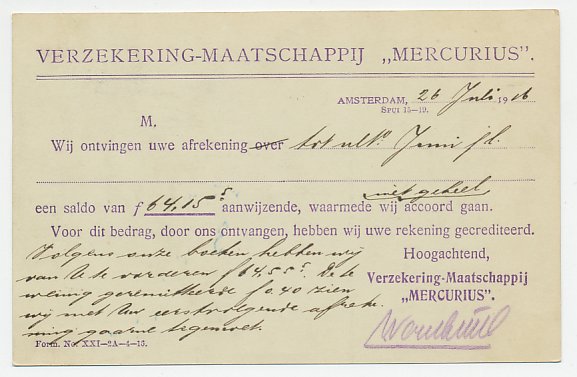 VERZEKERING-MAATSCHAPPIJ „MERCURIUS”.
AMSTERDAM, 26 Juli 1916
SPUI 15-19.
M.
Wij ontvingen uwe afrekening over tot ulto Juni j.l.
niet geheel
een saldo van f 64,15⁵ aanwijzende, waarmede wij accoord gaan.
Voor dit bedrag, door ons ontvangen, hebben wij uwe rekening gecrediteerd.
Volgens onze boeken hebben wij
van U te vorderen f 64,55⁵. De te
weinig geremitteerde f 0.40 zien
wij met Uw eerstvolgende afreke-
ning gaarne tegemoet.
Hoogachtend,
Verzekering-Maatschappij
„MERCURIUS”.
Form. No. XXI-2A-4-15.